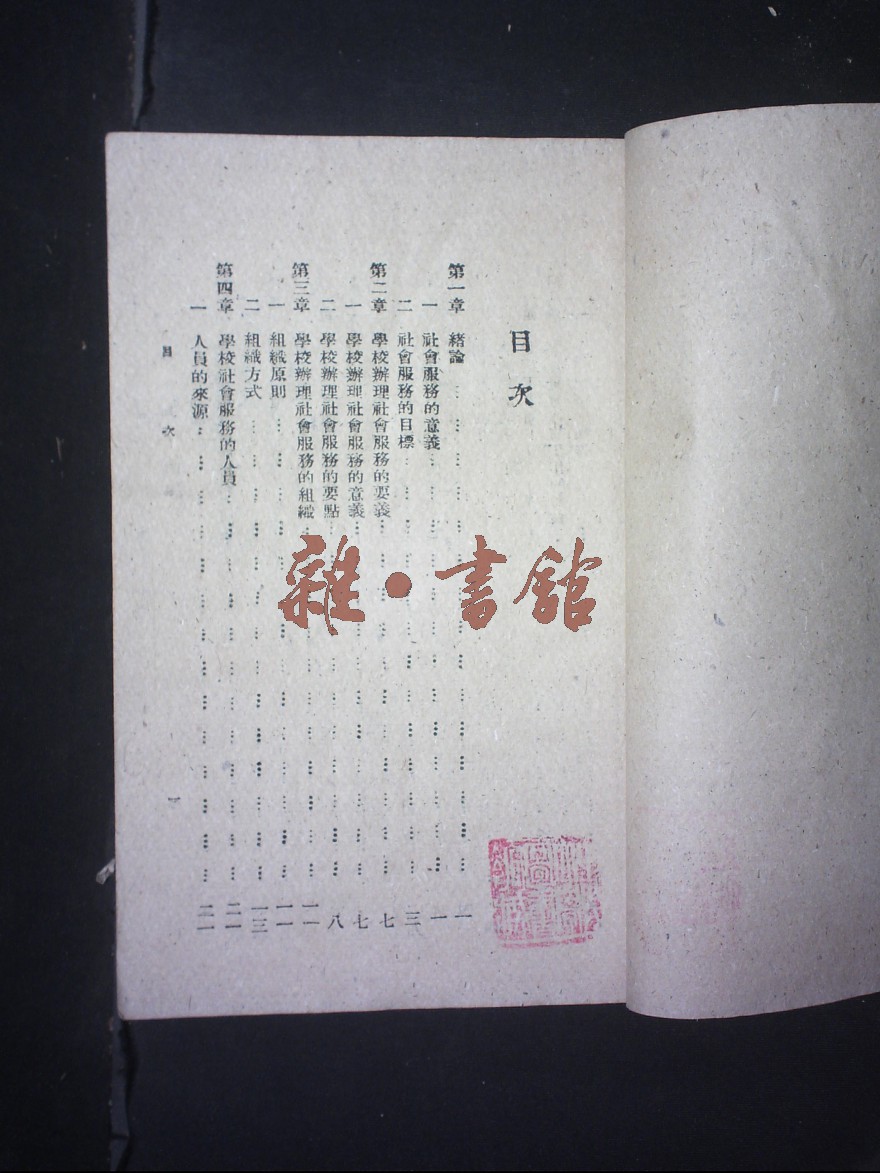 目次
第一章 緒論 一
一 社會服務的意義 一
二 社會服務的目標 三
第二章 學校辦理社會服務的要義 七
一 學校辦理社會服務的意義 七
二 學校辦理社會服務的要點 八
第三章 學校辦理社會服務的組織 一一
一 組織原則 一一
二 組織方式 一三
第四章 學校社會服務的人員 二一
一 人員的來源 二一
目次
一
雜·書館